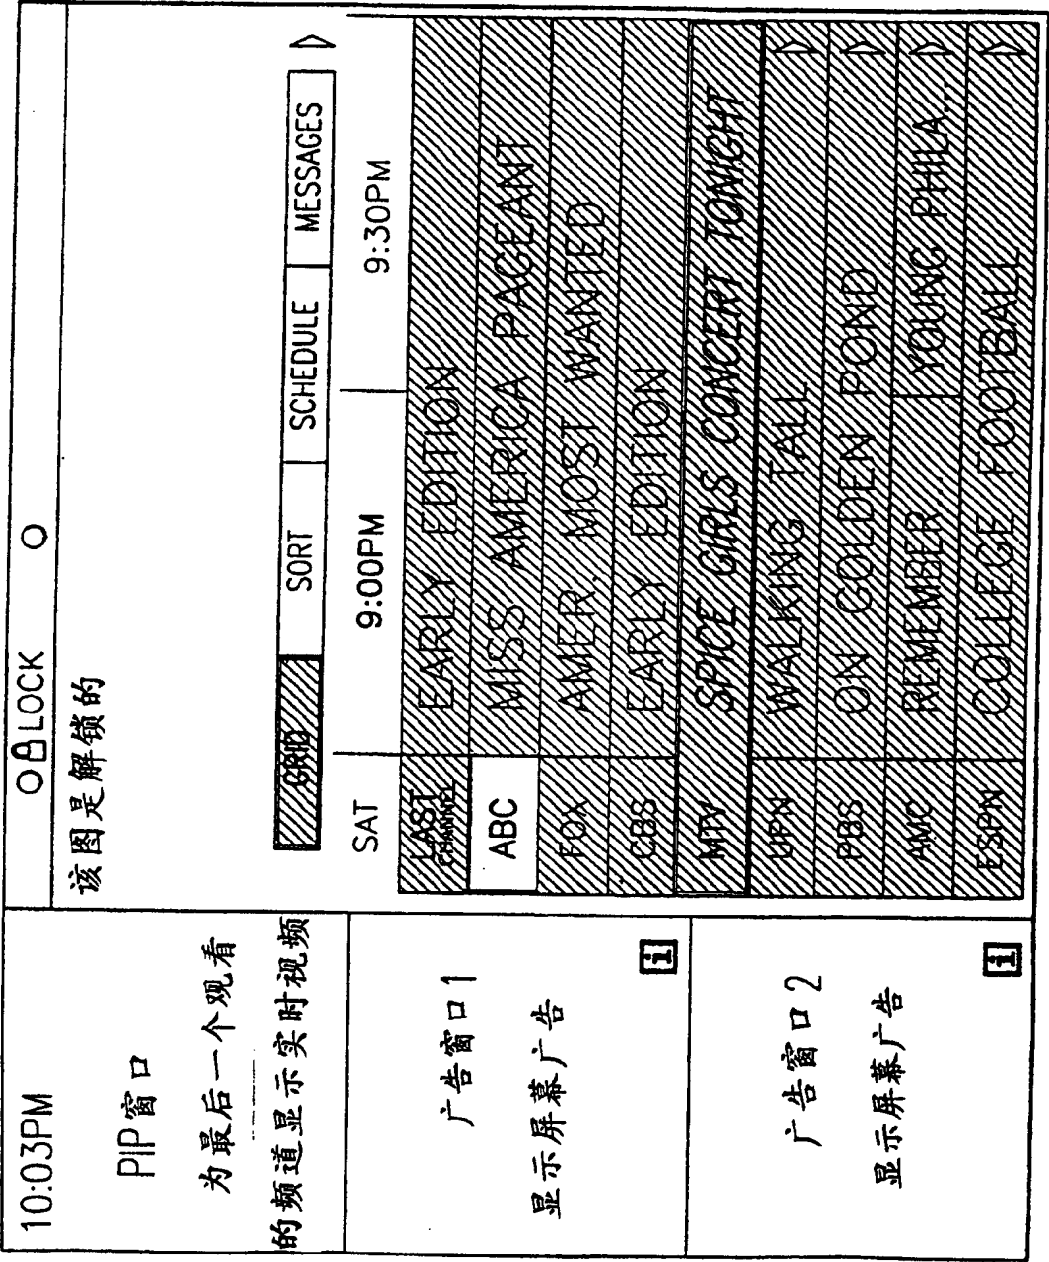 10:03PM
PIP窗口
为最后一个观看
的频道显示实时视频
广告窗口1
显示屏幕广告
i
广告窗口2
显示屏幕广告
i
LOCK
该图是解锁的
GRID SORT SCHEDULE MESSAGES
SAT 9:00PM 9:30PM
LAST CHANNEL EARLY EDITION
ABC MISS AMERICA PAGEANT
FOX AMER. MOST WANTED
CBS EARLY EDITION
MTV SPICE GIRLS CONCERT TONIGHT
UPN WALKING TALL
PBS ON GOLDEN POND
AMC REMEMBER... YOUNG PHILA...
ESPN COLLEGE FOOTBALL